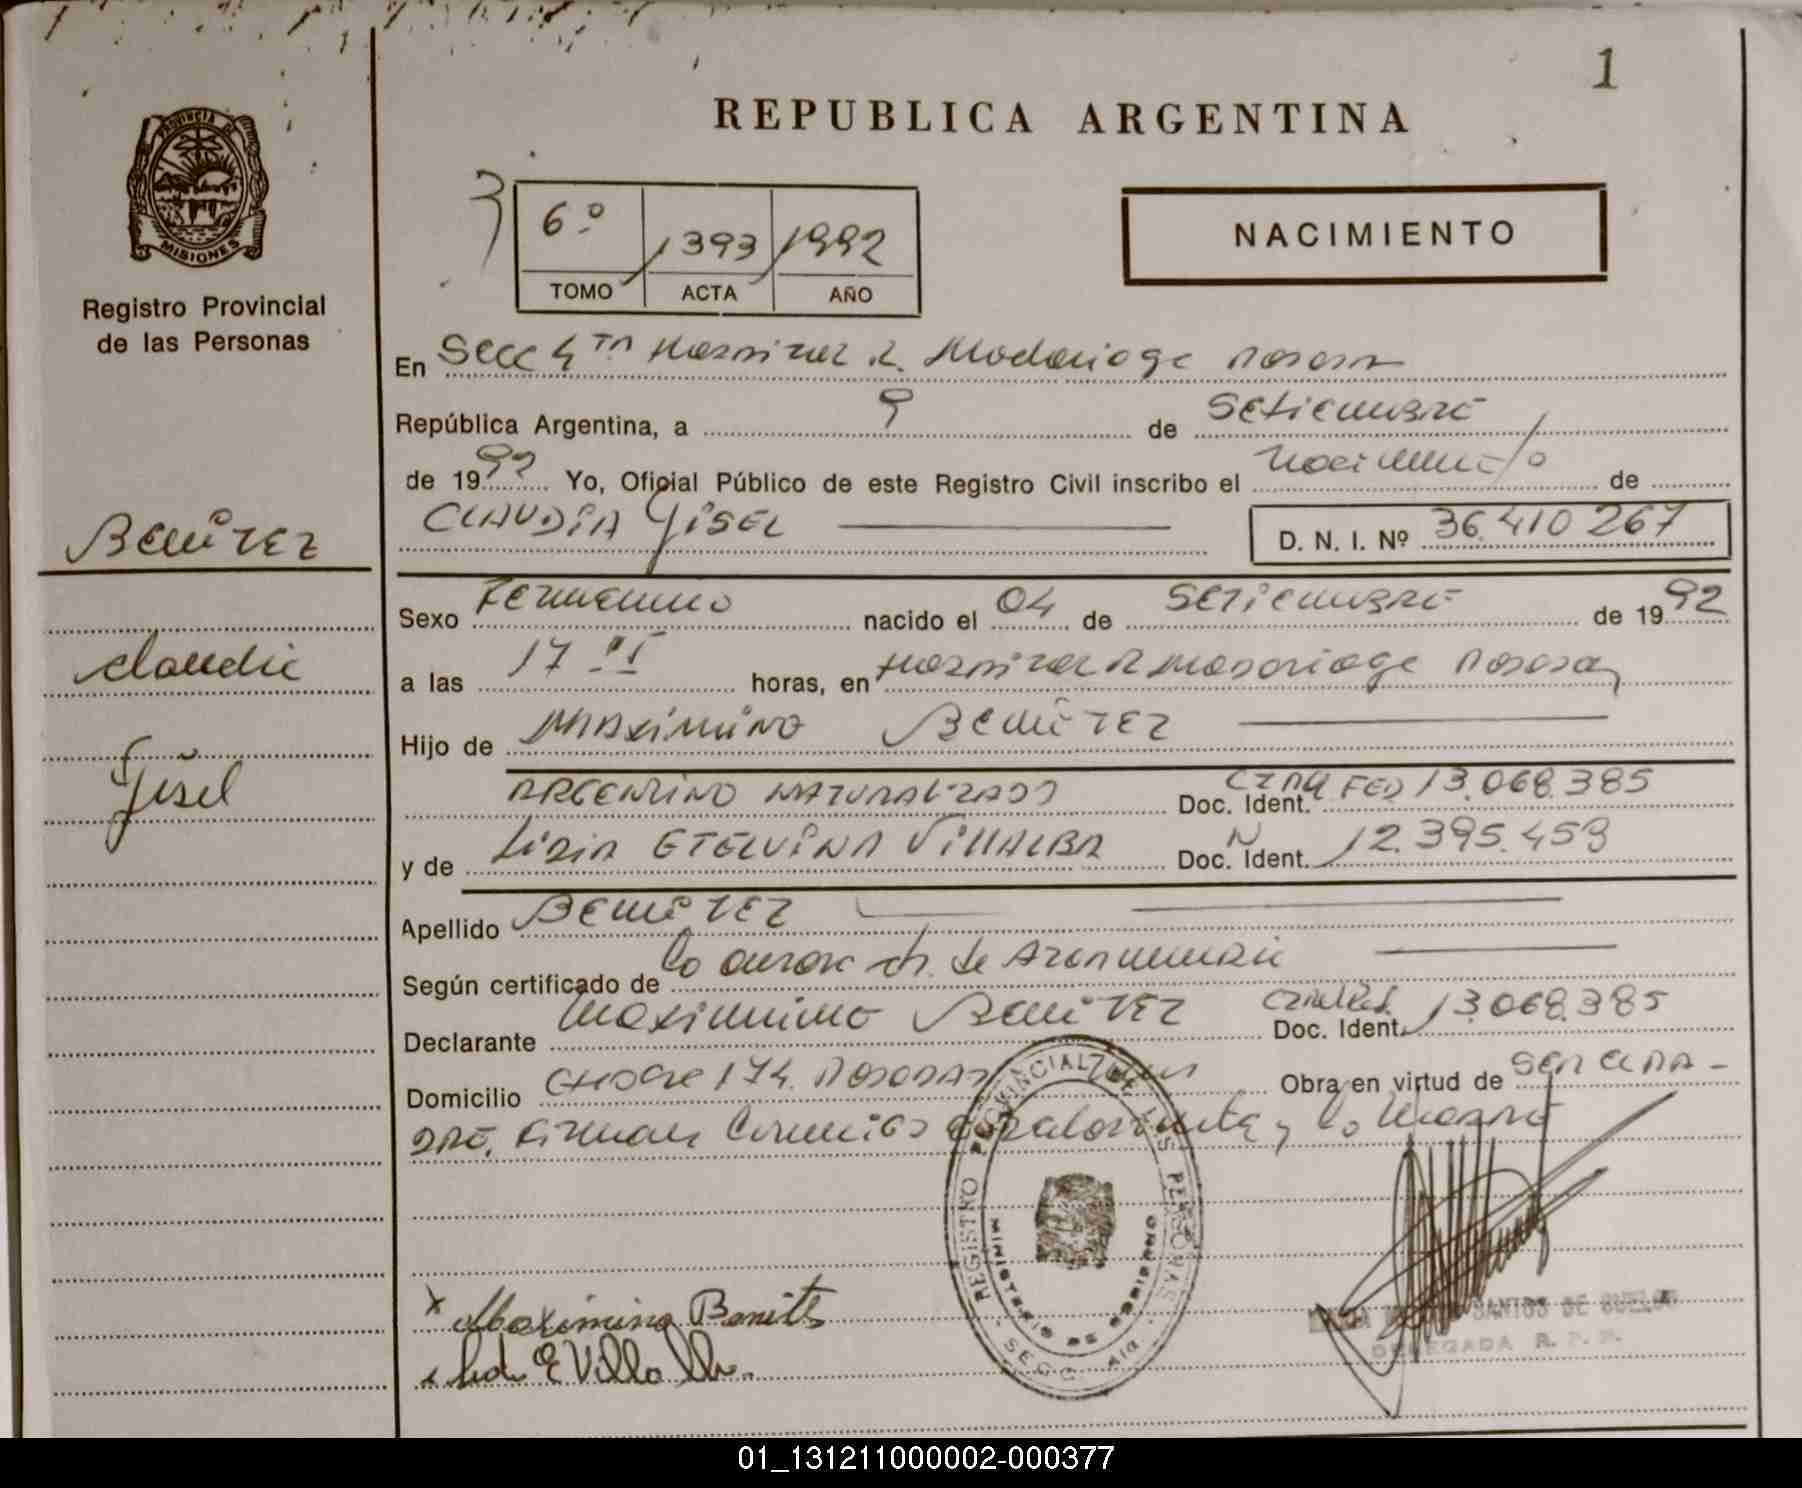 1
REPUBLICA ARGENTINA
PROVINCIA DE
MISIONES
6º 1393 1992
TOMO ACTA AÑO
NACIMIENTO
Registro Provincial
de las Personas
En Secc 4ta Hospital R. Madariaga Posadas
República Argentina, a 9 de Setiembre
de 1992 Yo, Oficial Público de este Registro Civil inscribo el nacimiento de
CLAUDIA GISEL
D. N. I. Nº 36.410 267
Benitez
Claudia
Gisel
Sexo Femenino nacido el 04 de Setiembre de 1992
a las 17 horas, en Hospital R Madariaga Posadas
Hijo de MAXIMINO BENITEZ
ARGENTINO NATURALIZADO Doc. Ident. FED 13.068.385
y de Lidia ETELVINA VILLALBA Doc. Ident. 12.395.459
Apellido BENITEZ
Según certificado de
Declarante Maximino Benitez Doc. Ident. 13.068.385
Domicilio 174 Posadas Obra en virtud de ser el pa-
dre. Firman conmigo el declarante y la madre
REGISTRO PROVINCIAL DE LAS PERSONAS
MINISTERIO DE GOBIERNO
Maximino Benitez
E Villalba
SANTOS DE
DELEGADA R. P. P.
01_131211000002-000377